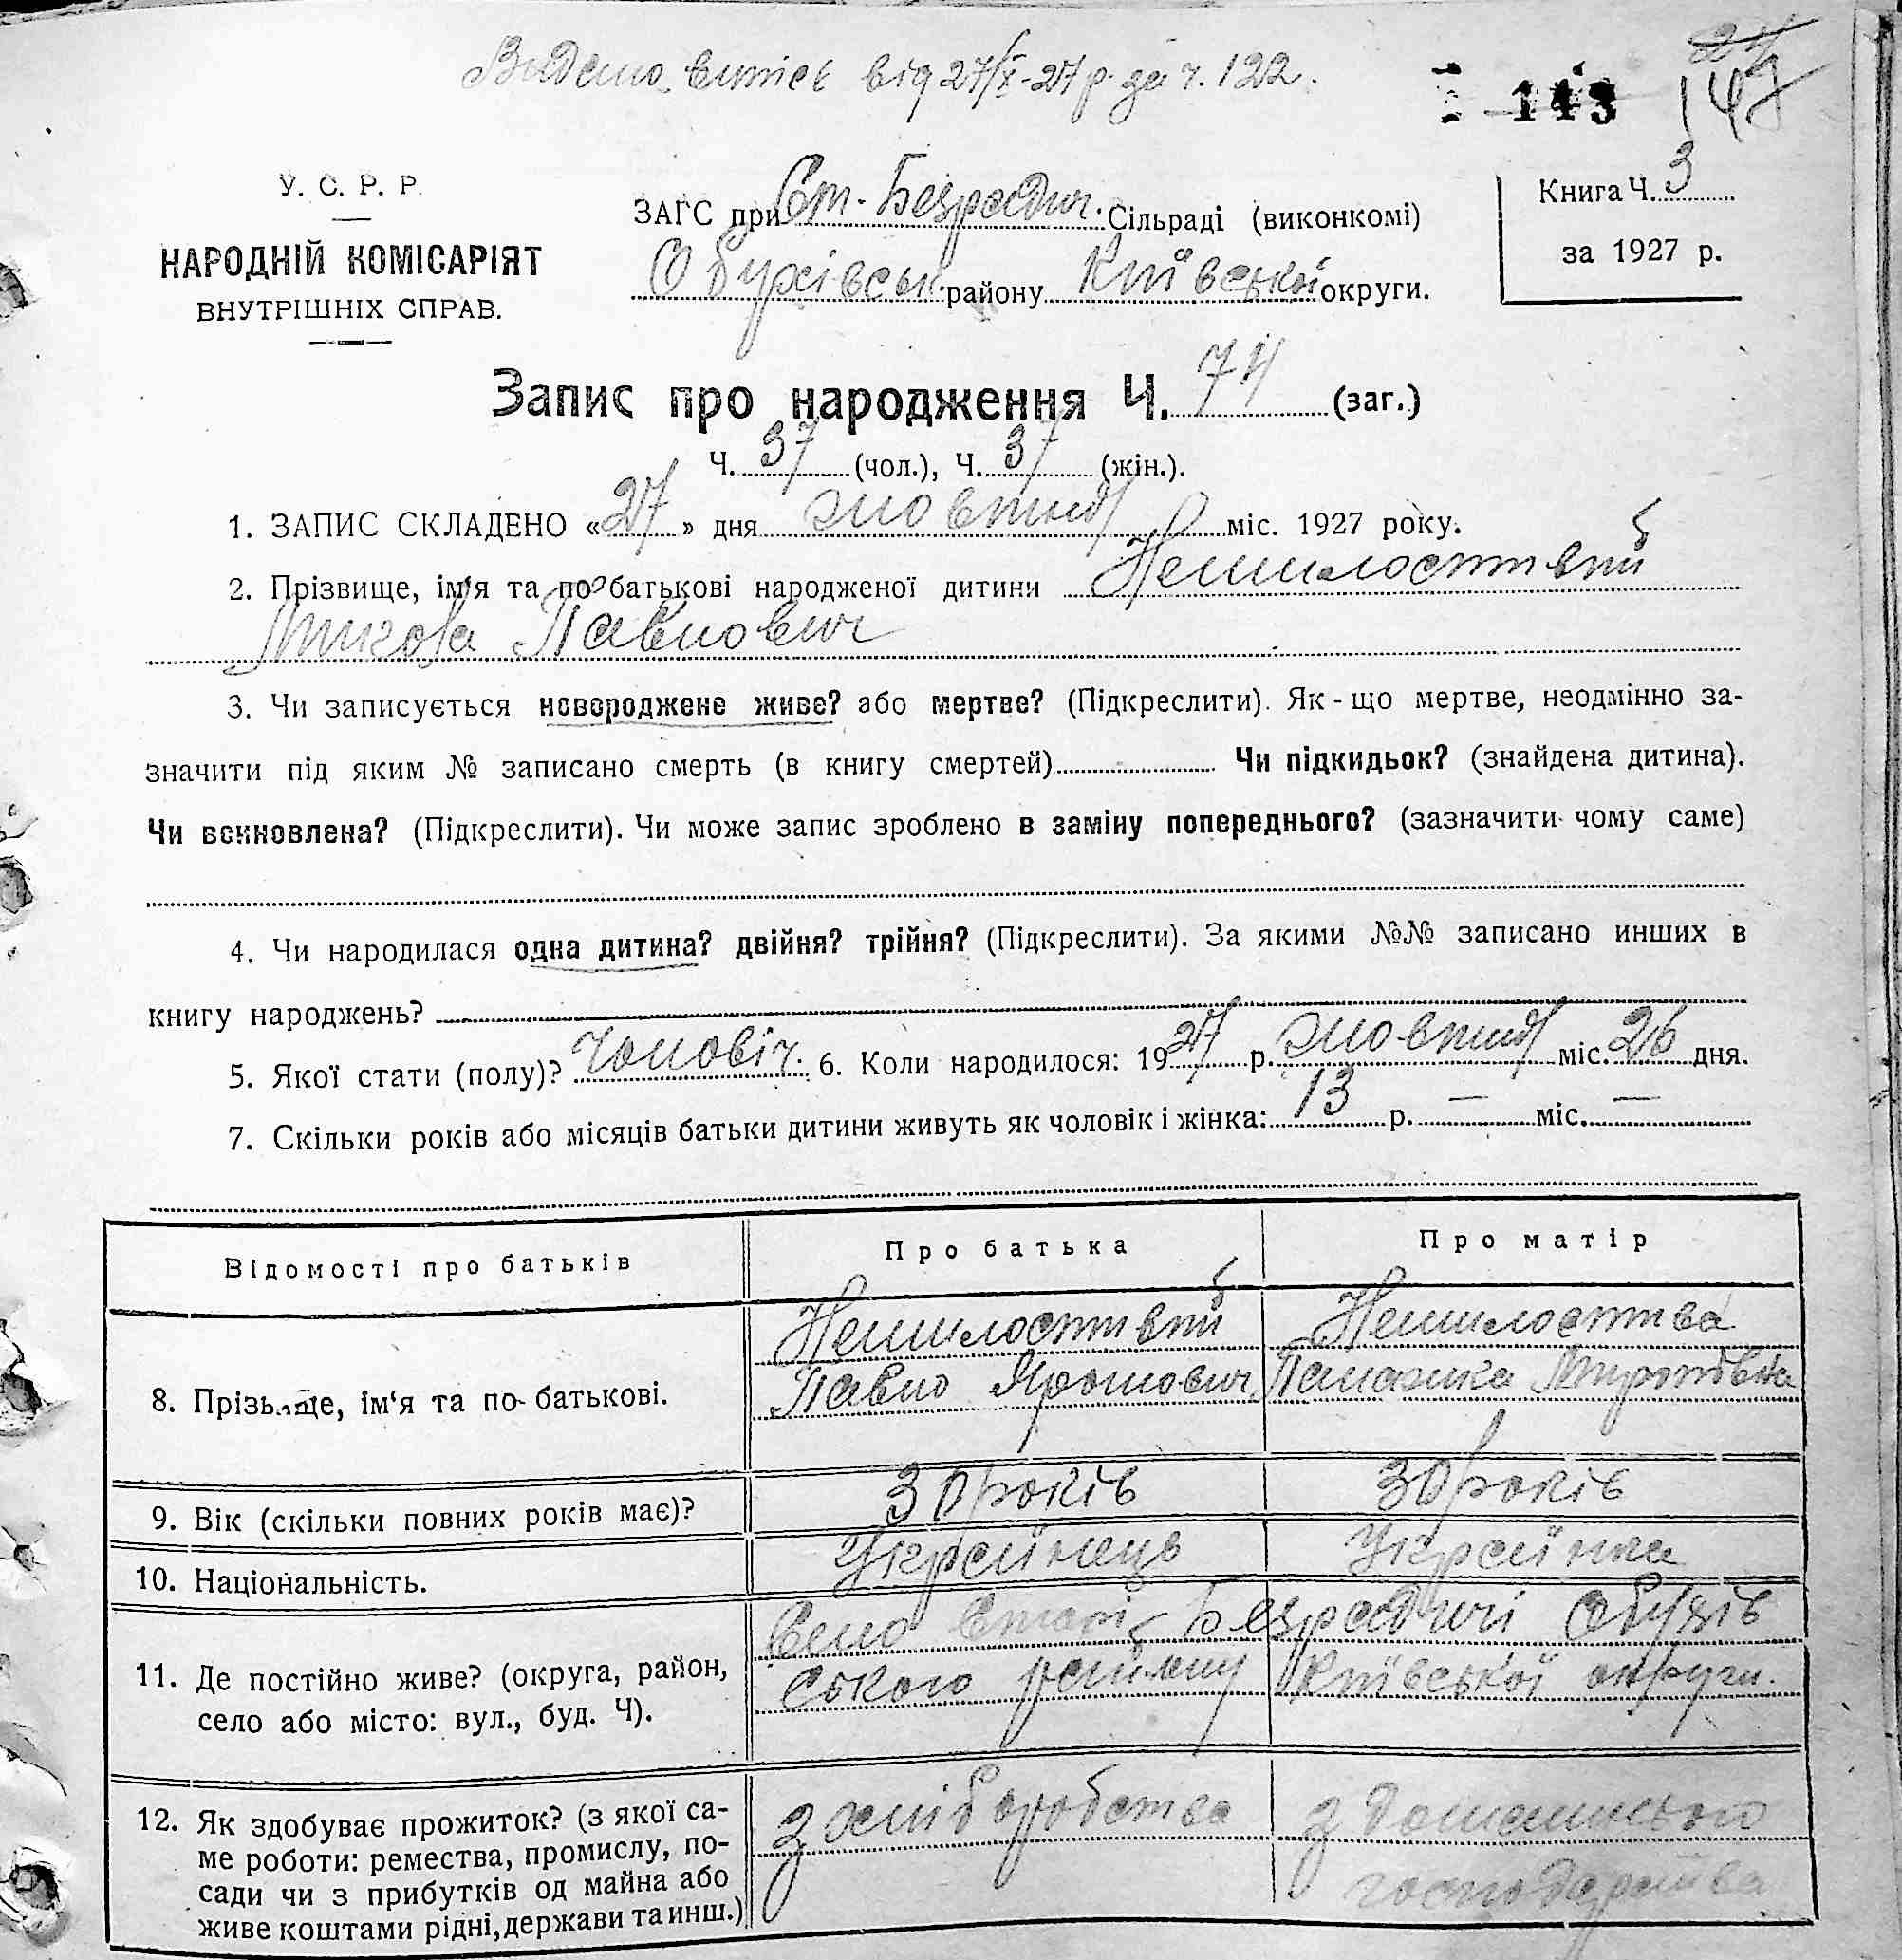 Видано витяг від 27/X-27 р. за ч. 122.
143
У. С. Р. Р.
НАРОДНІЙ КОМІСАРІЯТ
ВНУТРІШНІХ СПРАВ.
ЗАГС при Ст.-Безрадич. Сільраді (виконкомі)
Обухівськ. району Київської округи.
Книга Ч. 3
за 1927 р.
Запис про народження Ч. 74 (заг.)
Ч. 37 (чол.), Ч. 37 (жін.).
1. ЗАПИС СКЛАДЕНО «27» дня жовтня міс. 1927 року.
2. Прізвище, ім'я та по батькові народженої дитини Немилостивий
Микола Павлович
3. Чи записується новороджене живе? або мертве? (Підкреслити). Як-що мертве, неодмінно за-
значити під яким № записано смерть (в книгу смертей) Чи підкидьок? (знайдена дитина).
Чи всиновлена? (Підкреслити). Чи може запис зроблено в заміну попереднього? (зазначити чому саме)
4. Чи народилася одна дитина? двійня? трійня? (Підкреслити). За якими №№ записано инших в
книгу народжень?
5. Якої стати (полу)? чоловіч. 6. Коли народилося: 1927 р. жовтня міс. 26 дня.
7. Скільки років або місяців батьки дитини живуть як чоловік і жінка: 13 р. — міс. —
Відомості про батьків Про батька Про матір
Немилостивий Немилостива
8. Прізвище, ім'я та по-батькові. Павло Ярошович Паламка Миронівна
9. Вік (скільки повних років має)? 30 років 30 років
10. Національність. Українець Українка
Село Старі-Безрадичі Обухів
11. Де постійно живе? (округа, район, ського району Київської округи.
село або місто: вул., буд. Ч).
12. Як здобуває прожиток? (з якої са- з хліборобства з домашнього
ме роботи: ремества, промислу, по-
сади чи з прибутків од майна або господарства
живе коштами рідні, держави та инш.)